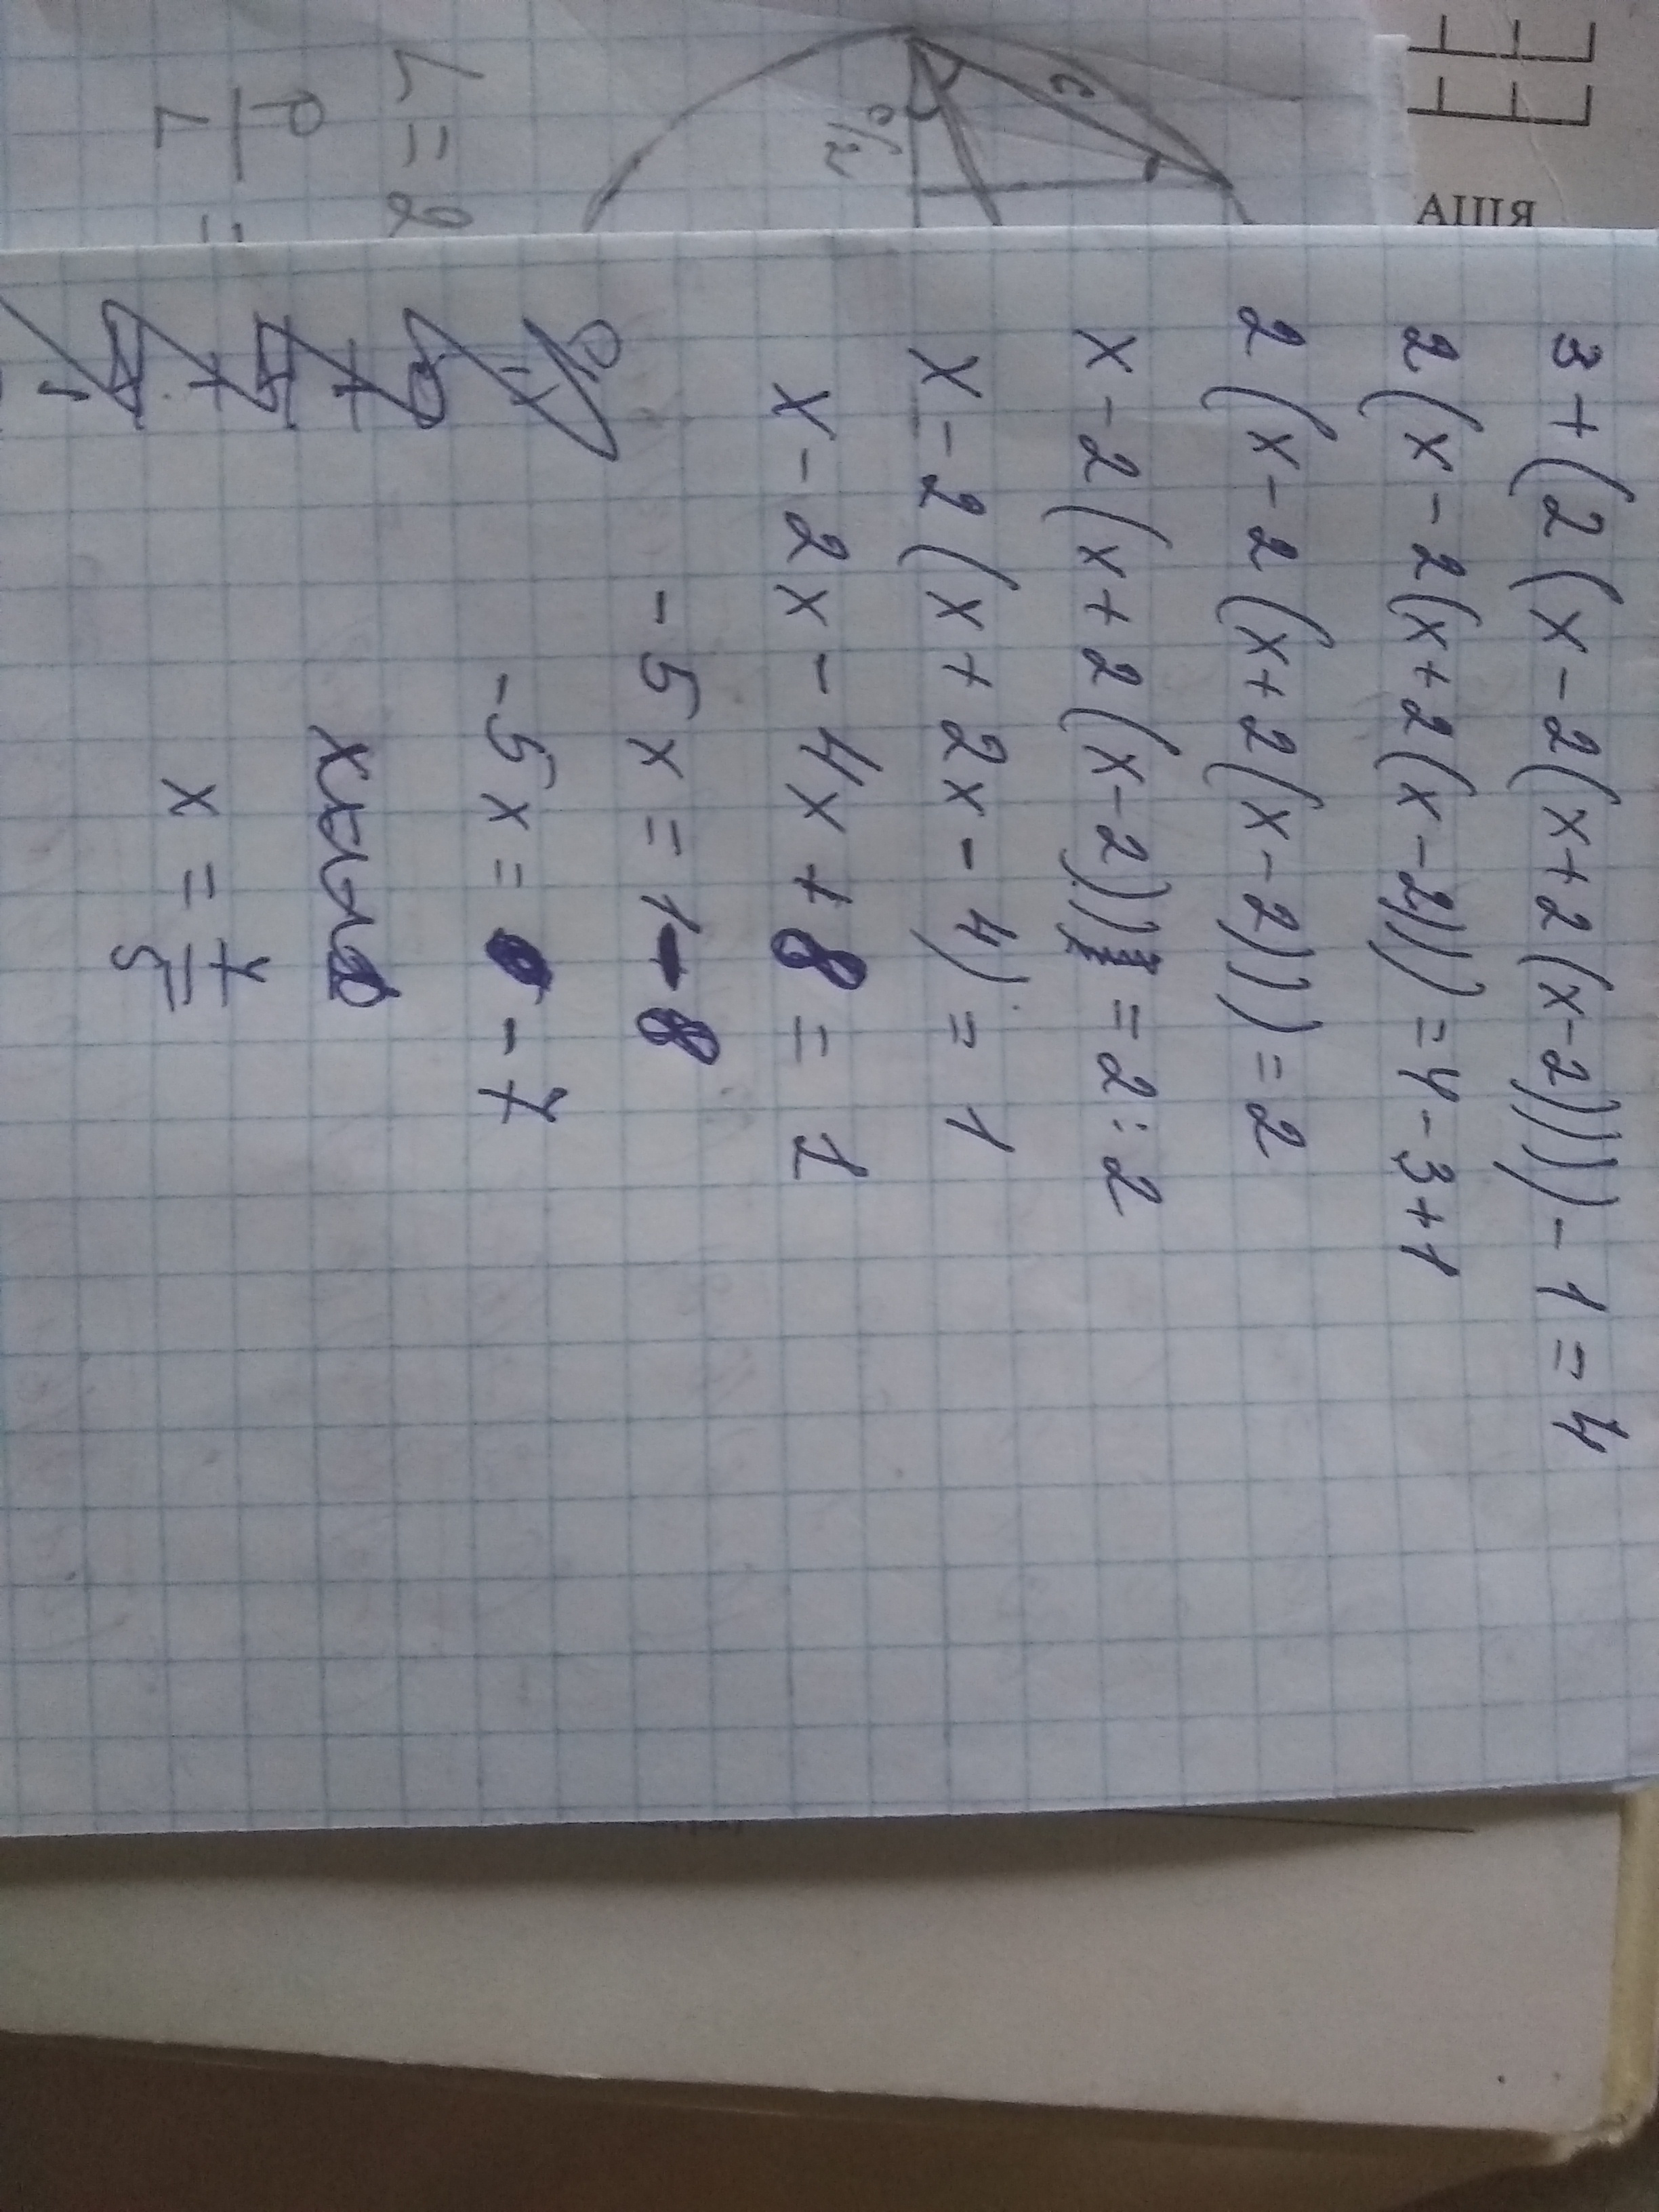 3+(2(x-2(x+2(x-2))))-1=4
2(x-2(x+2(x-2)))=4-3+1
2(x-2(x+2(x-2)))=2
x-2(x+2(x-2))=2:2
x-2(x+2x-4)=1
x-2x-4x+8=1
-5x=1-8
-5x=-7
x=7/5
c
c/2
L=2
P/L=
АЦІЯ